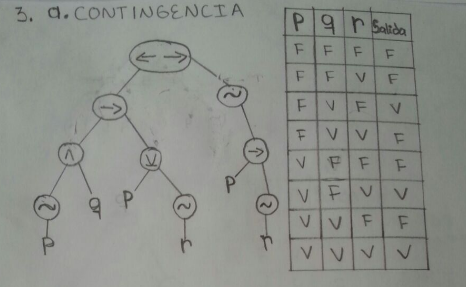 3. a. CONTINGENCIA
←→
→ ~
∧ ⊻ →
~ q p ~ p ~
p r r
p q r Salida
F F F F
F F V F
F V F V
F V V F
V F F F
V F V V
V V F F
V V V V